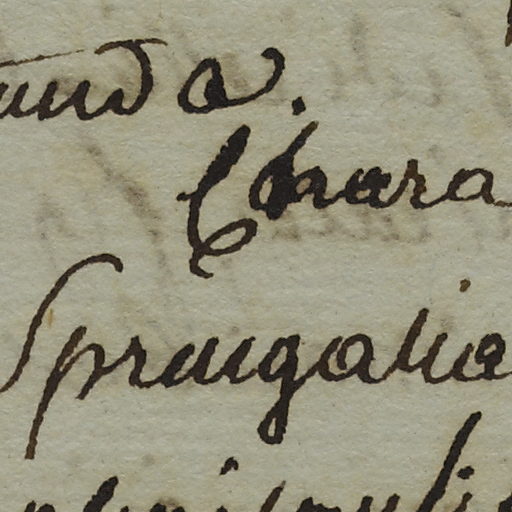 unda.
Chara
Sprengalia